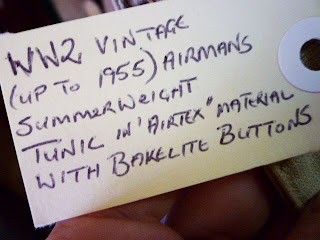 WW2 VINTAGE
(UP TO 1955) AIRMANS
SUMMERWEIGHT
TUNIC IN 'AIRTEX" MATERIAL
WITH BAKELITE BUTTONS